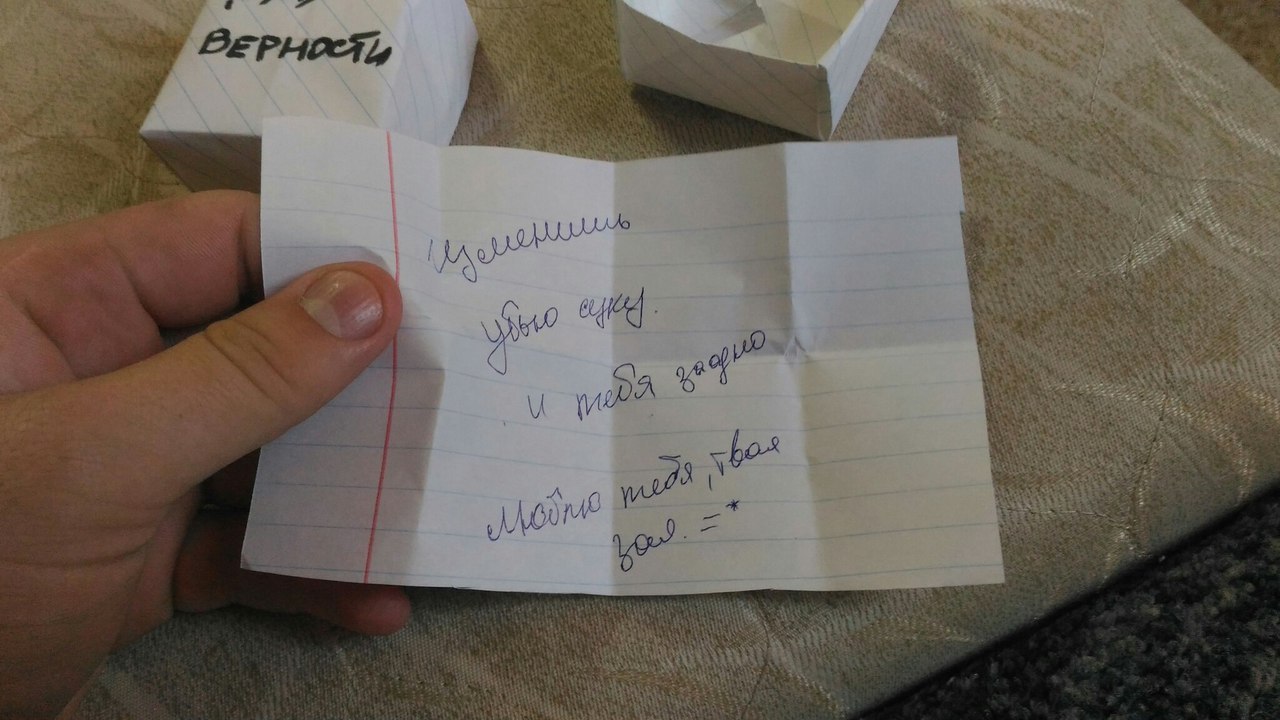 ВЕРНОСТИ
Изменишь
убью суку.
и тебя заодно
Люблю тебя, твоя
зая. =*